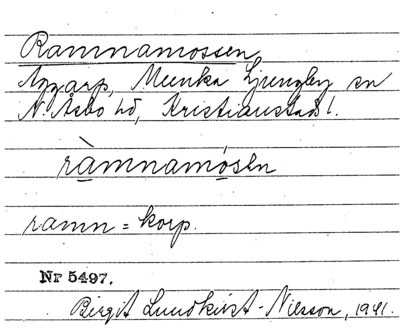 Ramnamossen
Aggarp, Munka Ljungby sn
N. Åsbo hd, Kristianstads l.
ràmnamósln
ramn = korp.
Nr 5497.
Birgit Lundkvist-Nilsson, 1941.